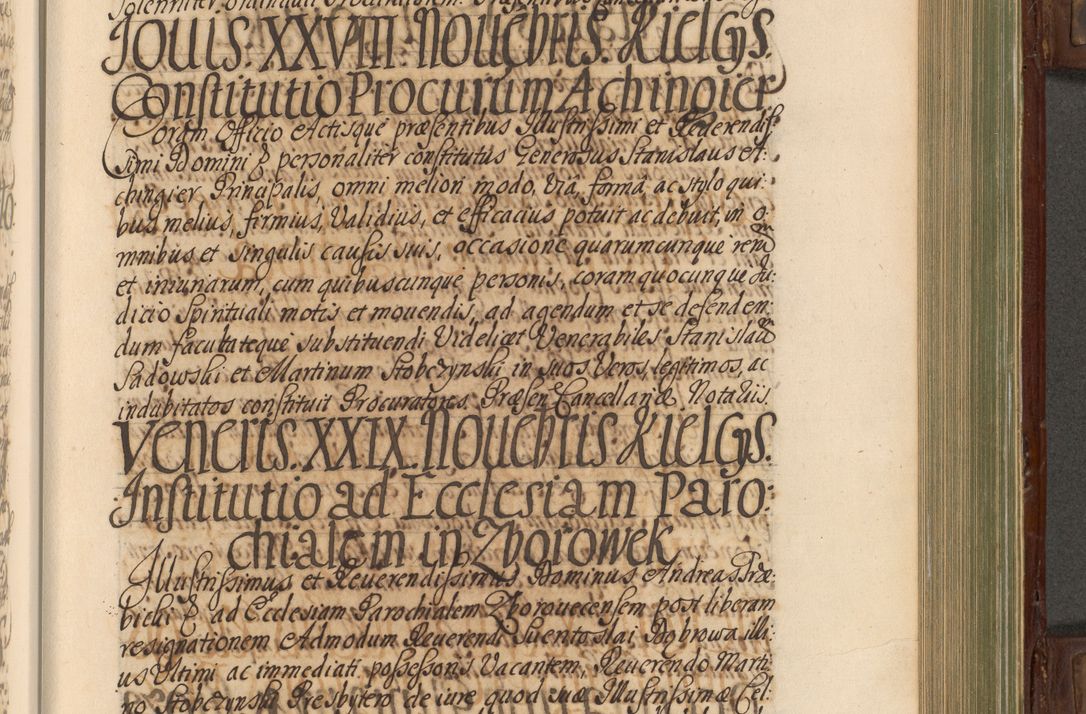 Jouis. XXVIII. Nouebris. Kielcys.
Constitutio Procurum Achingier
Coram Officio Actisque præsentibus Illustrissimi et Reuerendis=
simi Domini & personaliter constitutus Generosus Stanislaus A=
chingier Principalis, omni meliori modo, via, forma, ac stylo qui=
bus melius, firmius, validius, et efficacius potuit ac debuit, in o=
mnibus et singulis causis suis, occasione quarumcunque rerum
et iniuriarum, cum quibuscunque personis, coram quocunque Ju=
dicio Spirituali motis et mouendis, ad agendum et se defenden=
dum facultateque substituendi Videlicet Venerabiles Stanislaum
Sadowski et Martinum Stobczynski in suos Veros, legitimos, ac
indubitatos constituit Procuratores Præsen Cancellariæ Notariis.
Veneris. XXIX. Nouebris. Kielcys.
Institutio ad Ecclesiam Paro=
chialem in Zborowek
Illustrissimus et Reuerendissimus Dominus Andreas Trze=
bicki & ad Ecclesiam Parochialem Zborouecensem post liberam
resignationem Admodum Reuerendi Suentoslai Dobrowa illi=
us Vltimi ac immediati possessoris Vacantem, Reuerendo Marti
no Stobczynski Presbytero de iure quod suæ Illustrissimæ Cel=